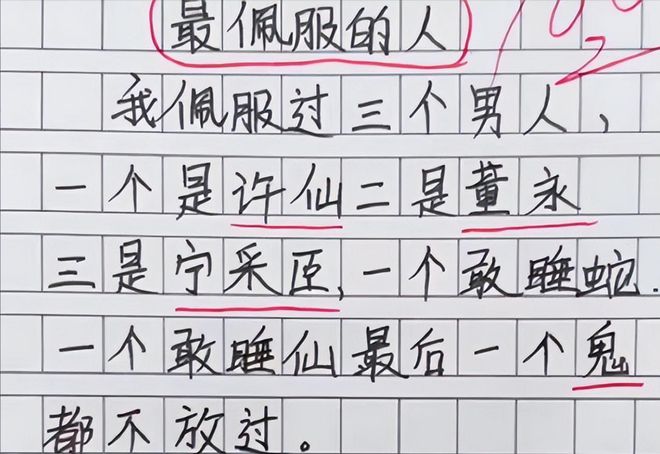 最佩服的人
我佩服过三个男人，
一个是许仙二是董永
三是宁采臣，一个敢睡蛇.
一个敢睡仙最后一个鬼
都不放过。